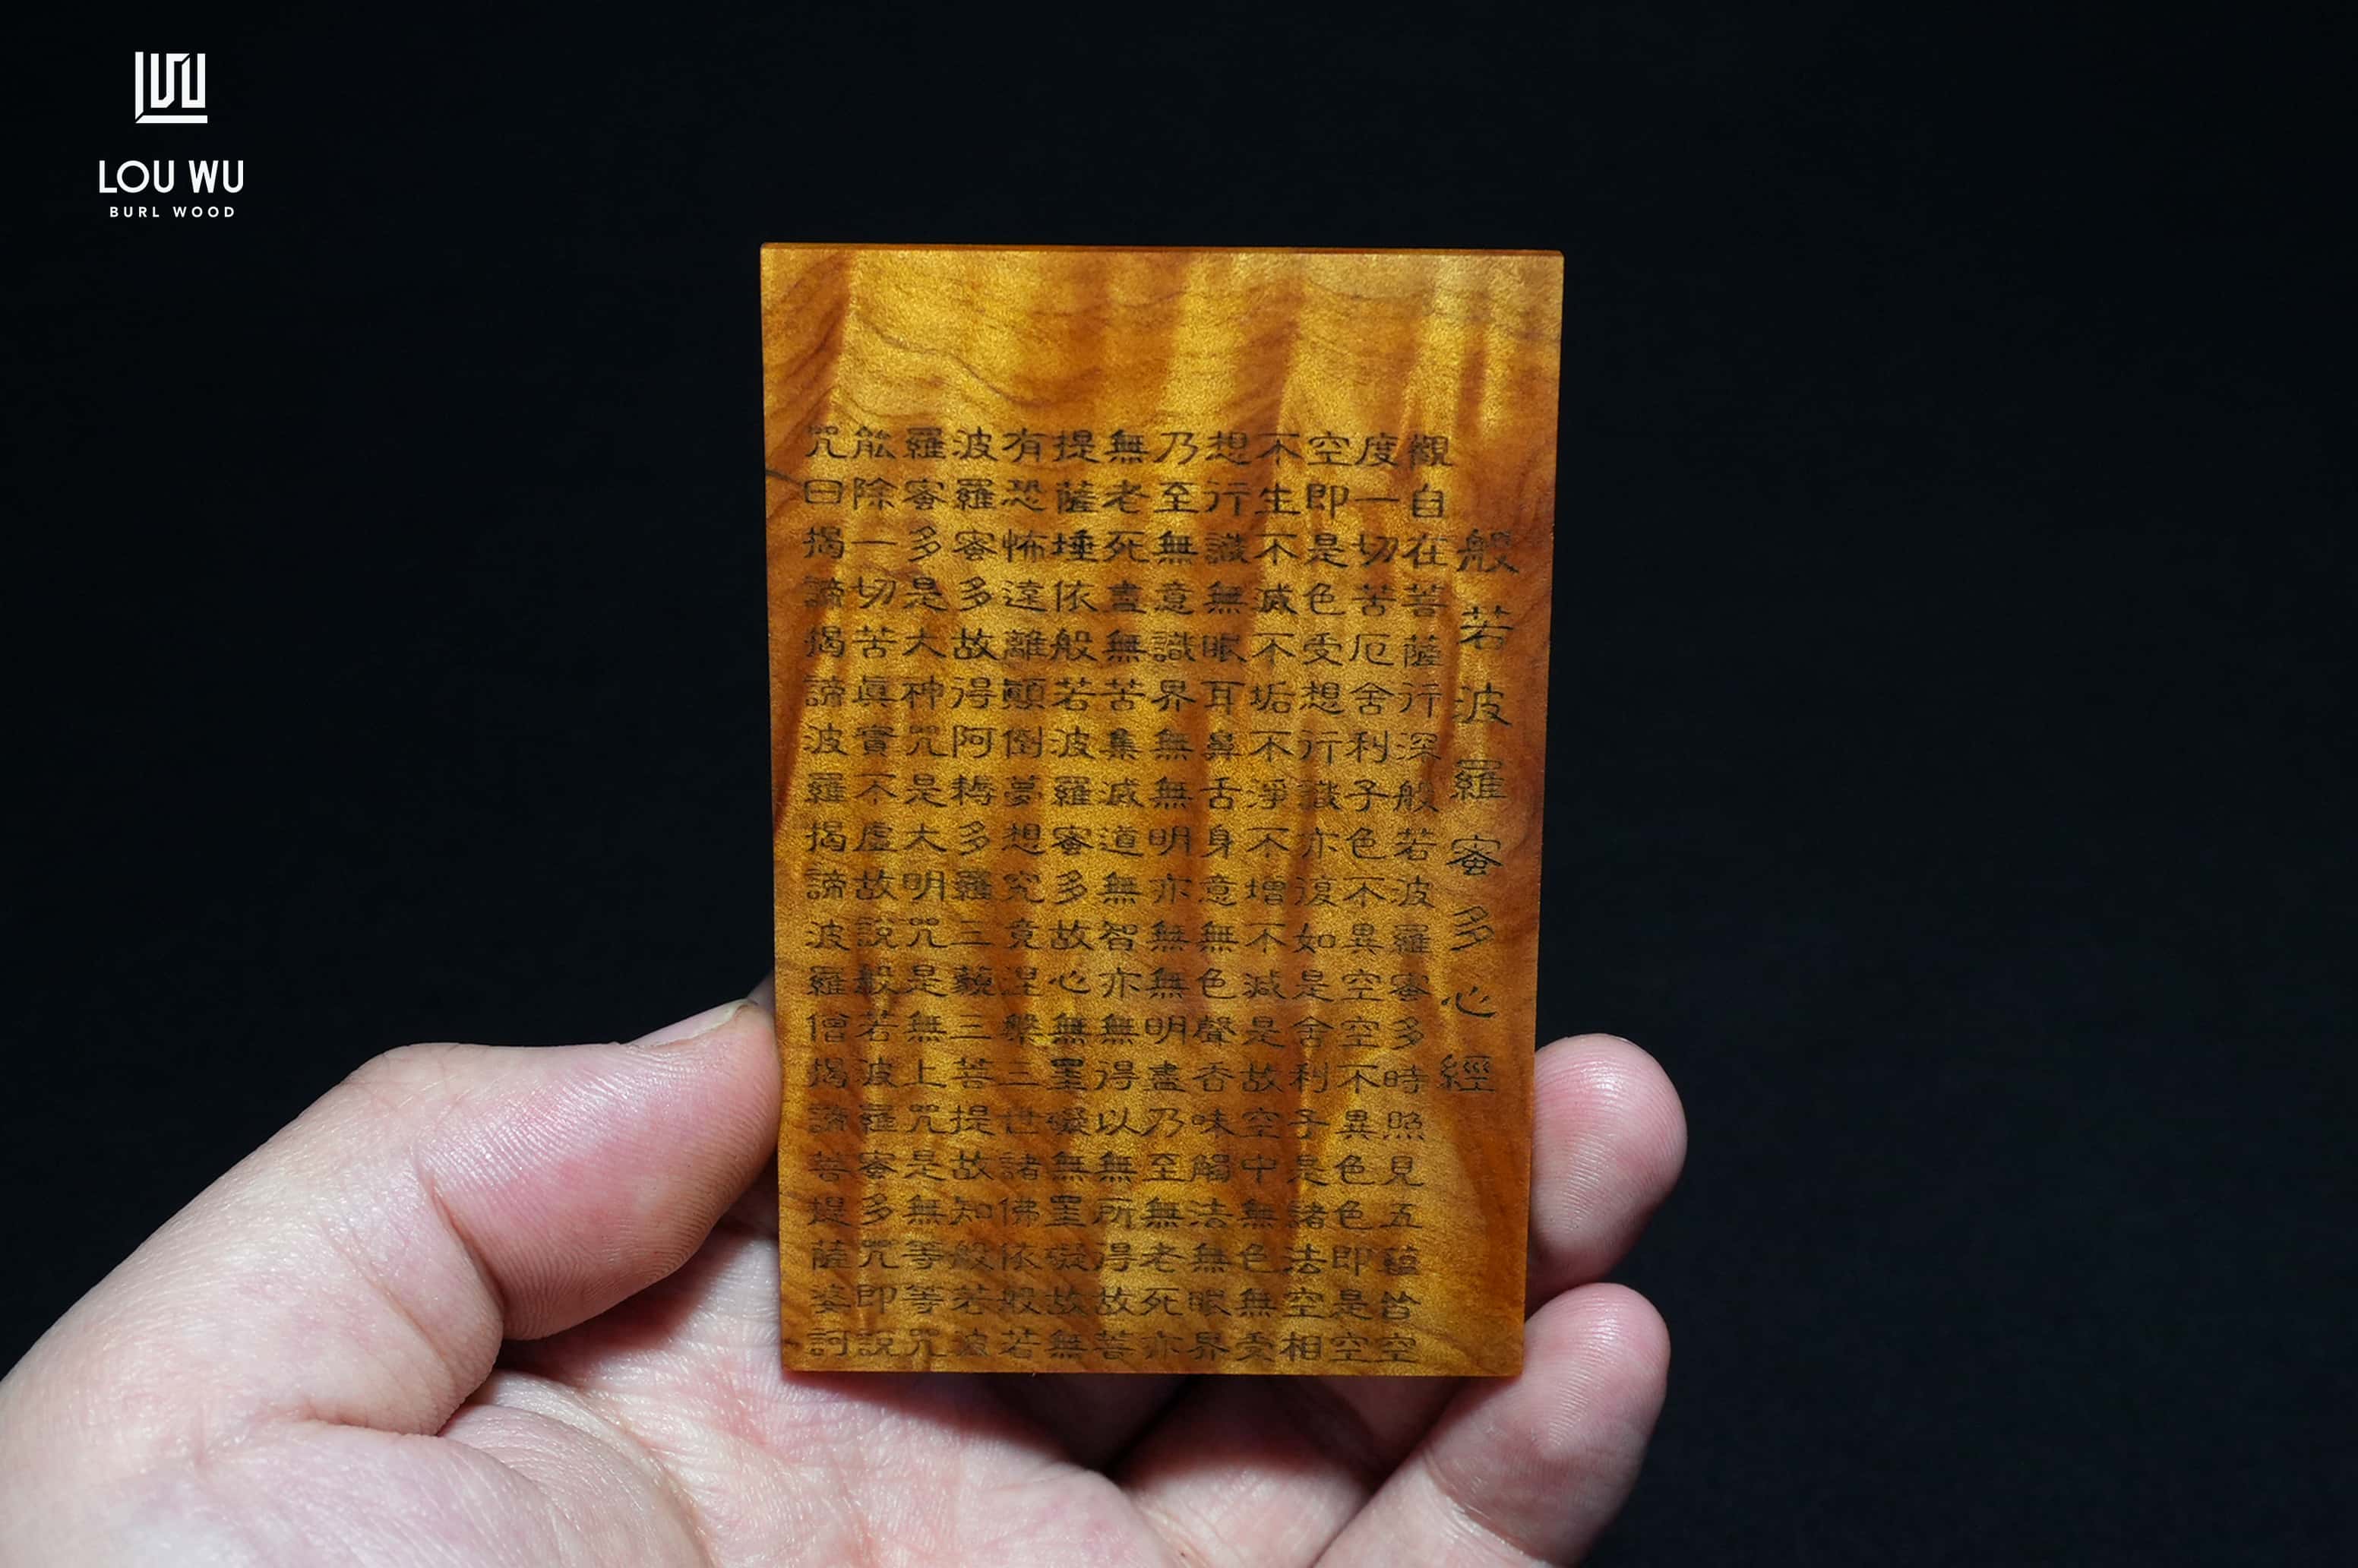 LOU WU
BURL WOOD
般若波羅蜜多心經
觀自在菩薩行深般若波羅蜜多時照見五蘊皆空
度一切苦厄舍利子色不異空空不異色色即是空
空即是色受想行識亦復如是舍利子是諸法空相
不生不滅不垢不淨不增不減是故空中無色無受
想行識無眼耳鼻舌身意無色聲香味觸法無眼界
乃至無意識界無無明亦無無明盡乃至無老死亦
無老死盡無苦集滅道無智亦無得以無所得故菩
提薩埵依般若波羅蜜多故心無罣礙無罣礙故無
有恐怖遠離顛倒夢想究竟涅槃三世諸佛依般若
波羅蜜多故得阿耨多羅三藐三菩提故知般若波
羅蜜多是大神咒是大明咒是無上咒是無等等咒
能除一切苦眞實不虛故說般若波羅蜜多咒即說
咒曰揭諦揭諦波羅揭諦波羅僧揭諦菩提薩婆訶